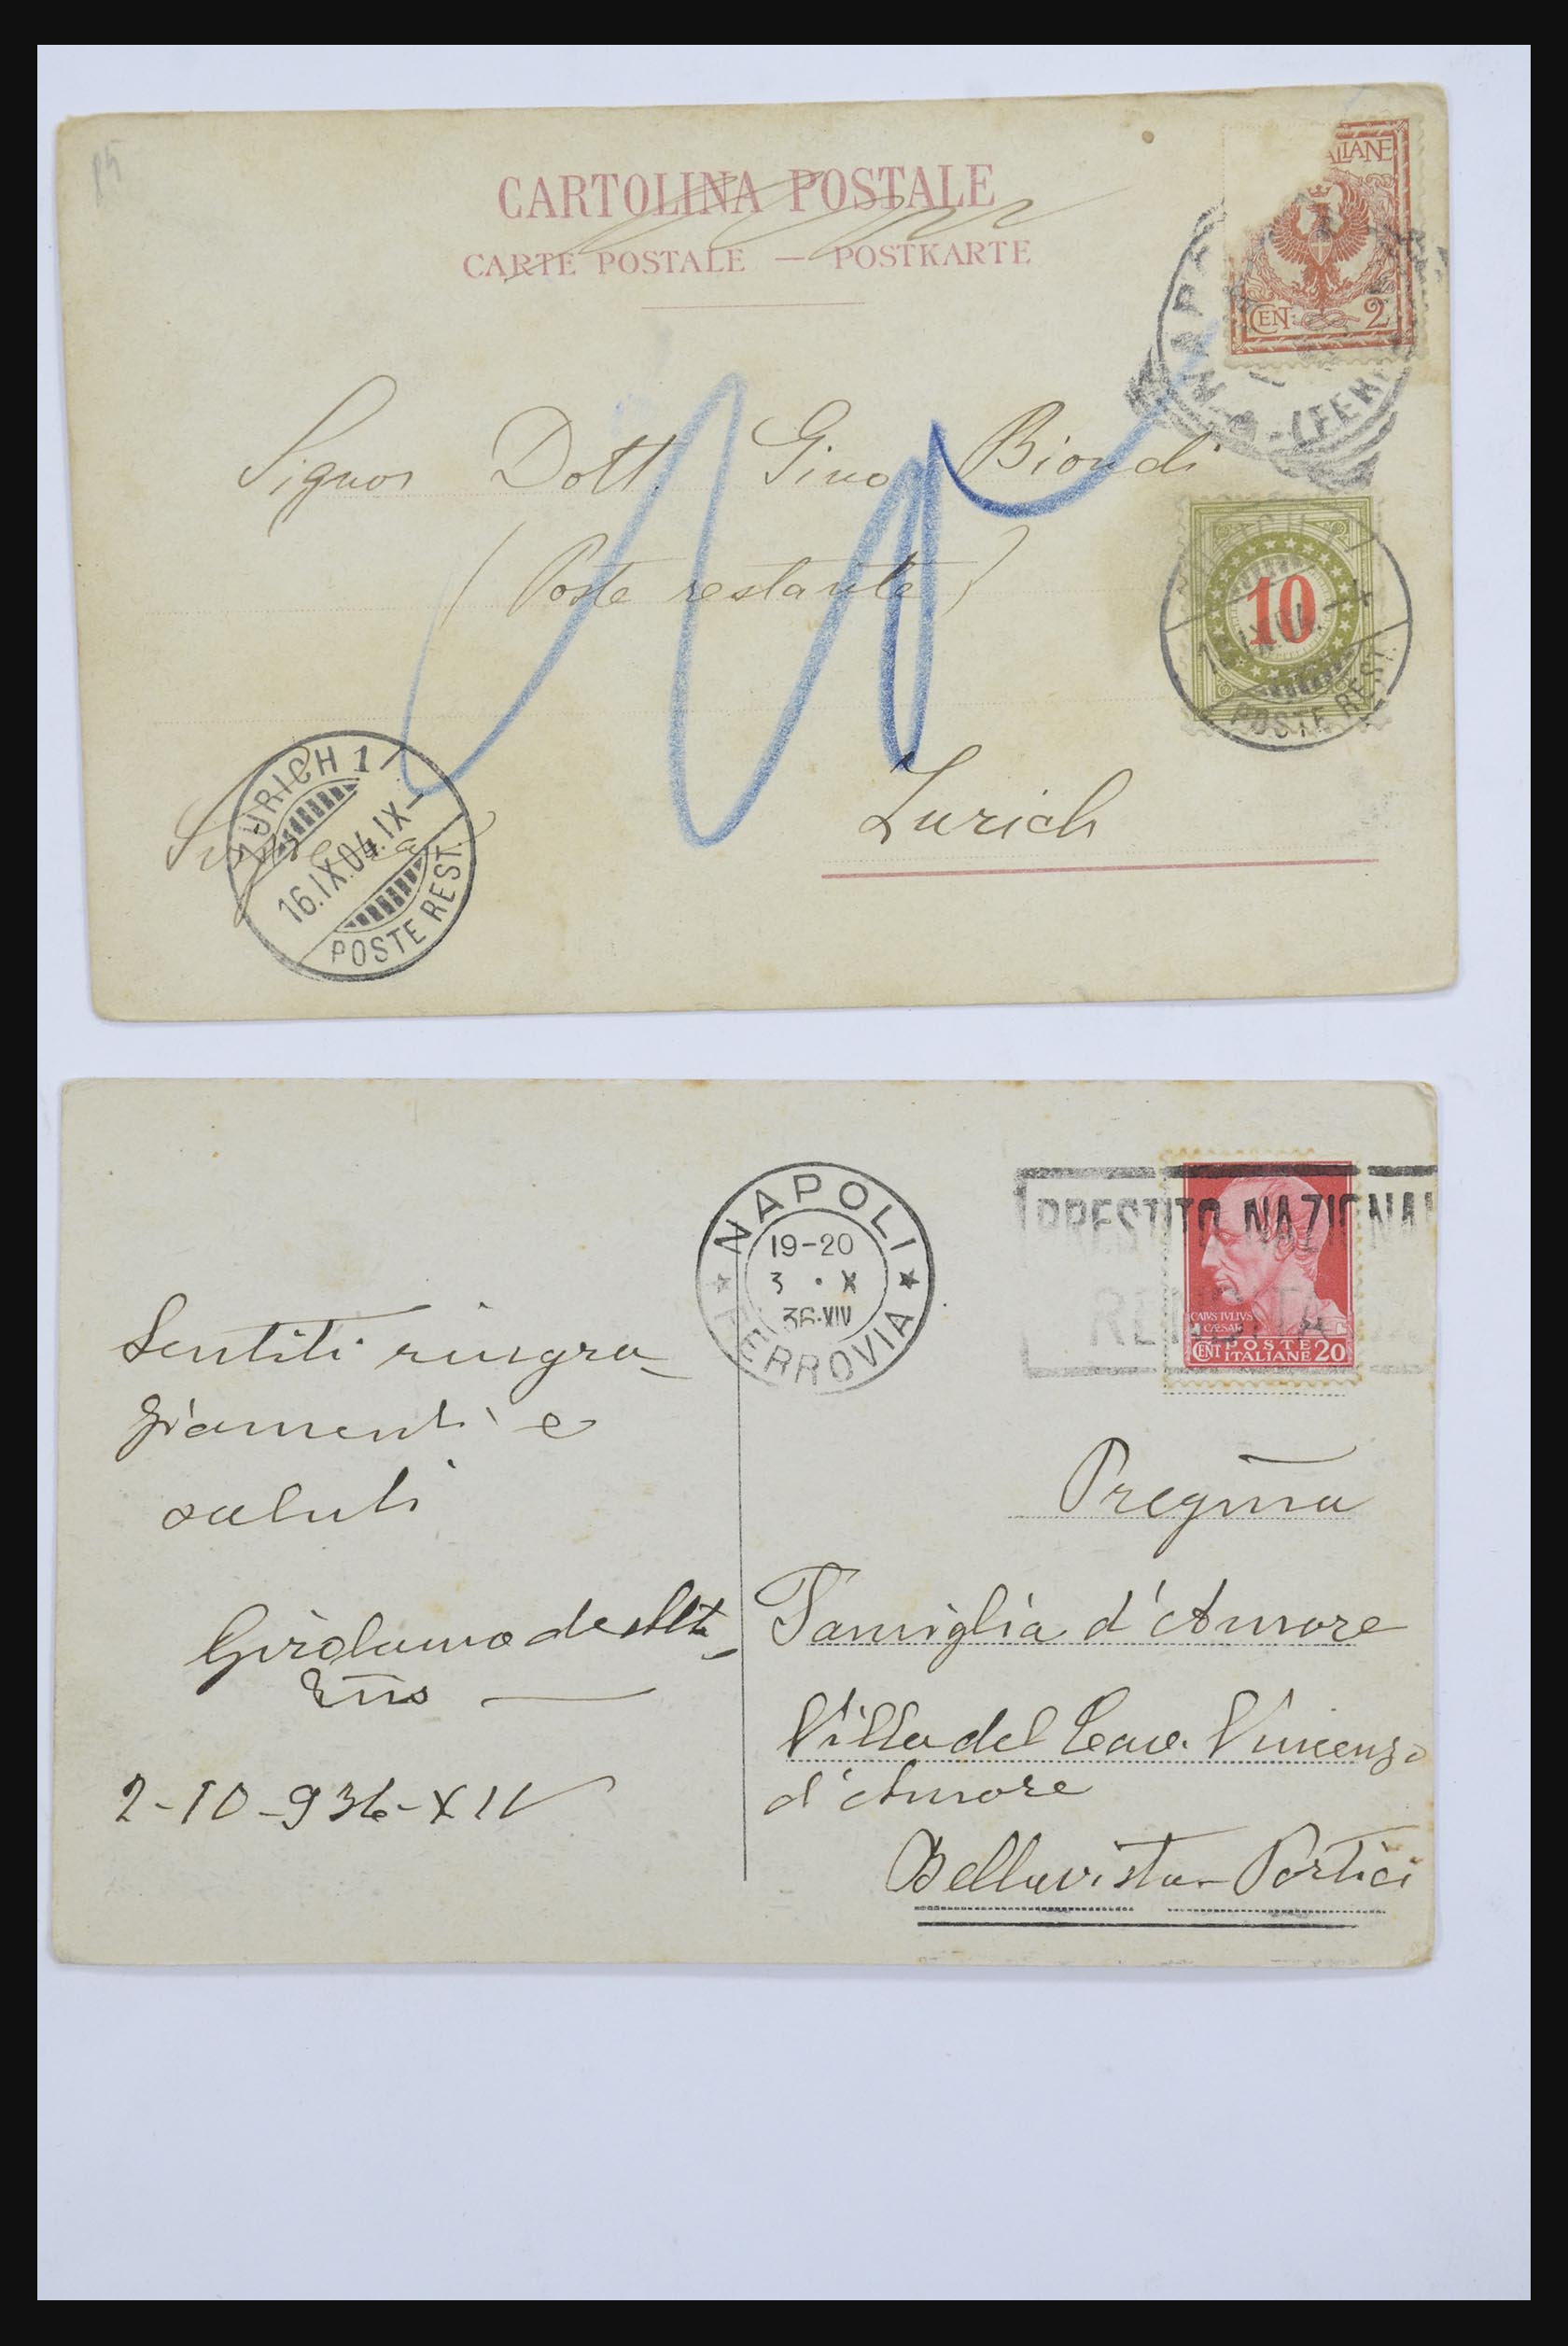 CARTOLINA POSTALE
CARTE POSTALE — POSTKARTE
ALIANE
CEN. 2
NAPO
(FER
Signor Dott. Gino Biondi
(Poste restante)
10
POSTE REST.
Zurich
Svizzera
ZÜRICH 1
16.IX.04.IX-
POSTE REST.
NAPOLI
19-20
3 · X
36·XIV
FERROVIA
PRESTITO NAZIONAL
RENDITA
CAIVS IVLIVS
CAESAR
CENT POSTE ITALIANE 20
Sentiti ringra-
ziamenti e
saluti
Girolamo de
2-10-936-XIV
Pregma
Famiglia d'Amore
Villa del Cav. Vincenzo
d'Amore
Bellavista - Portici